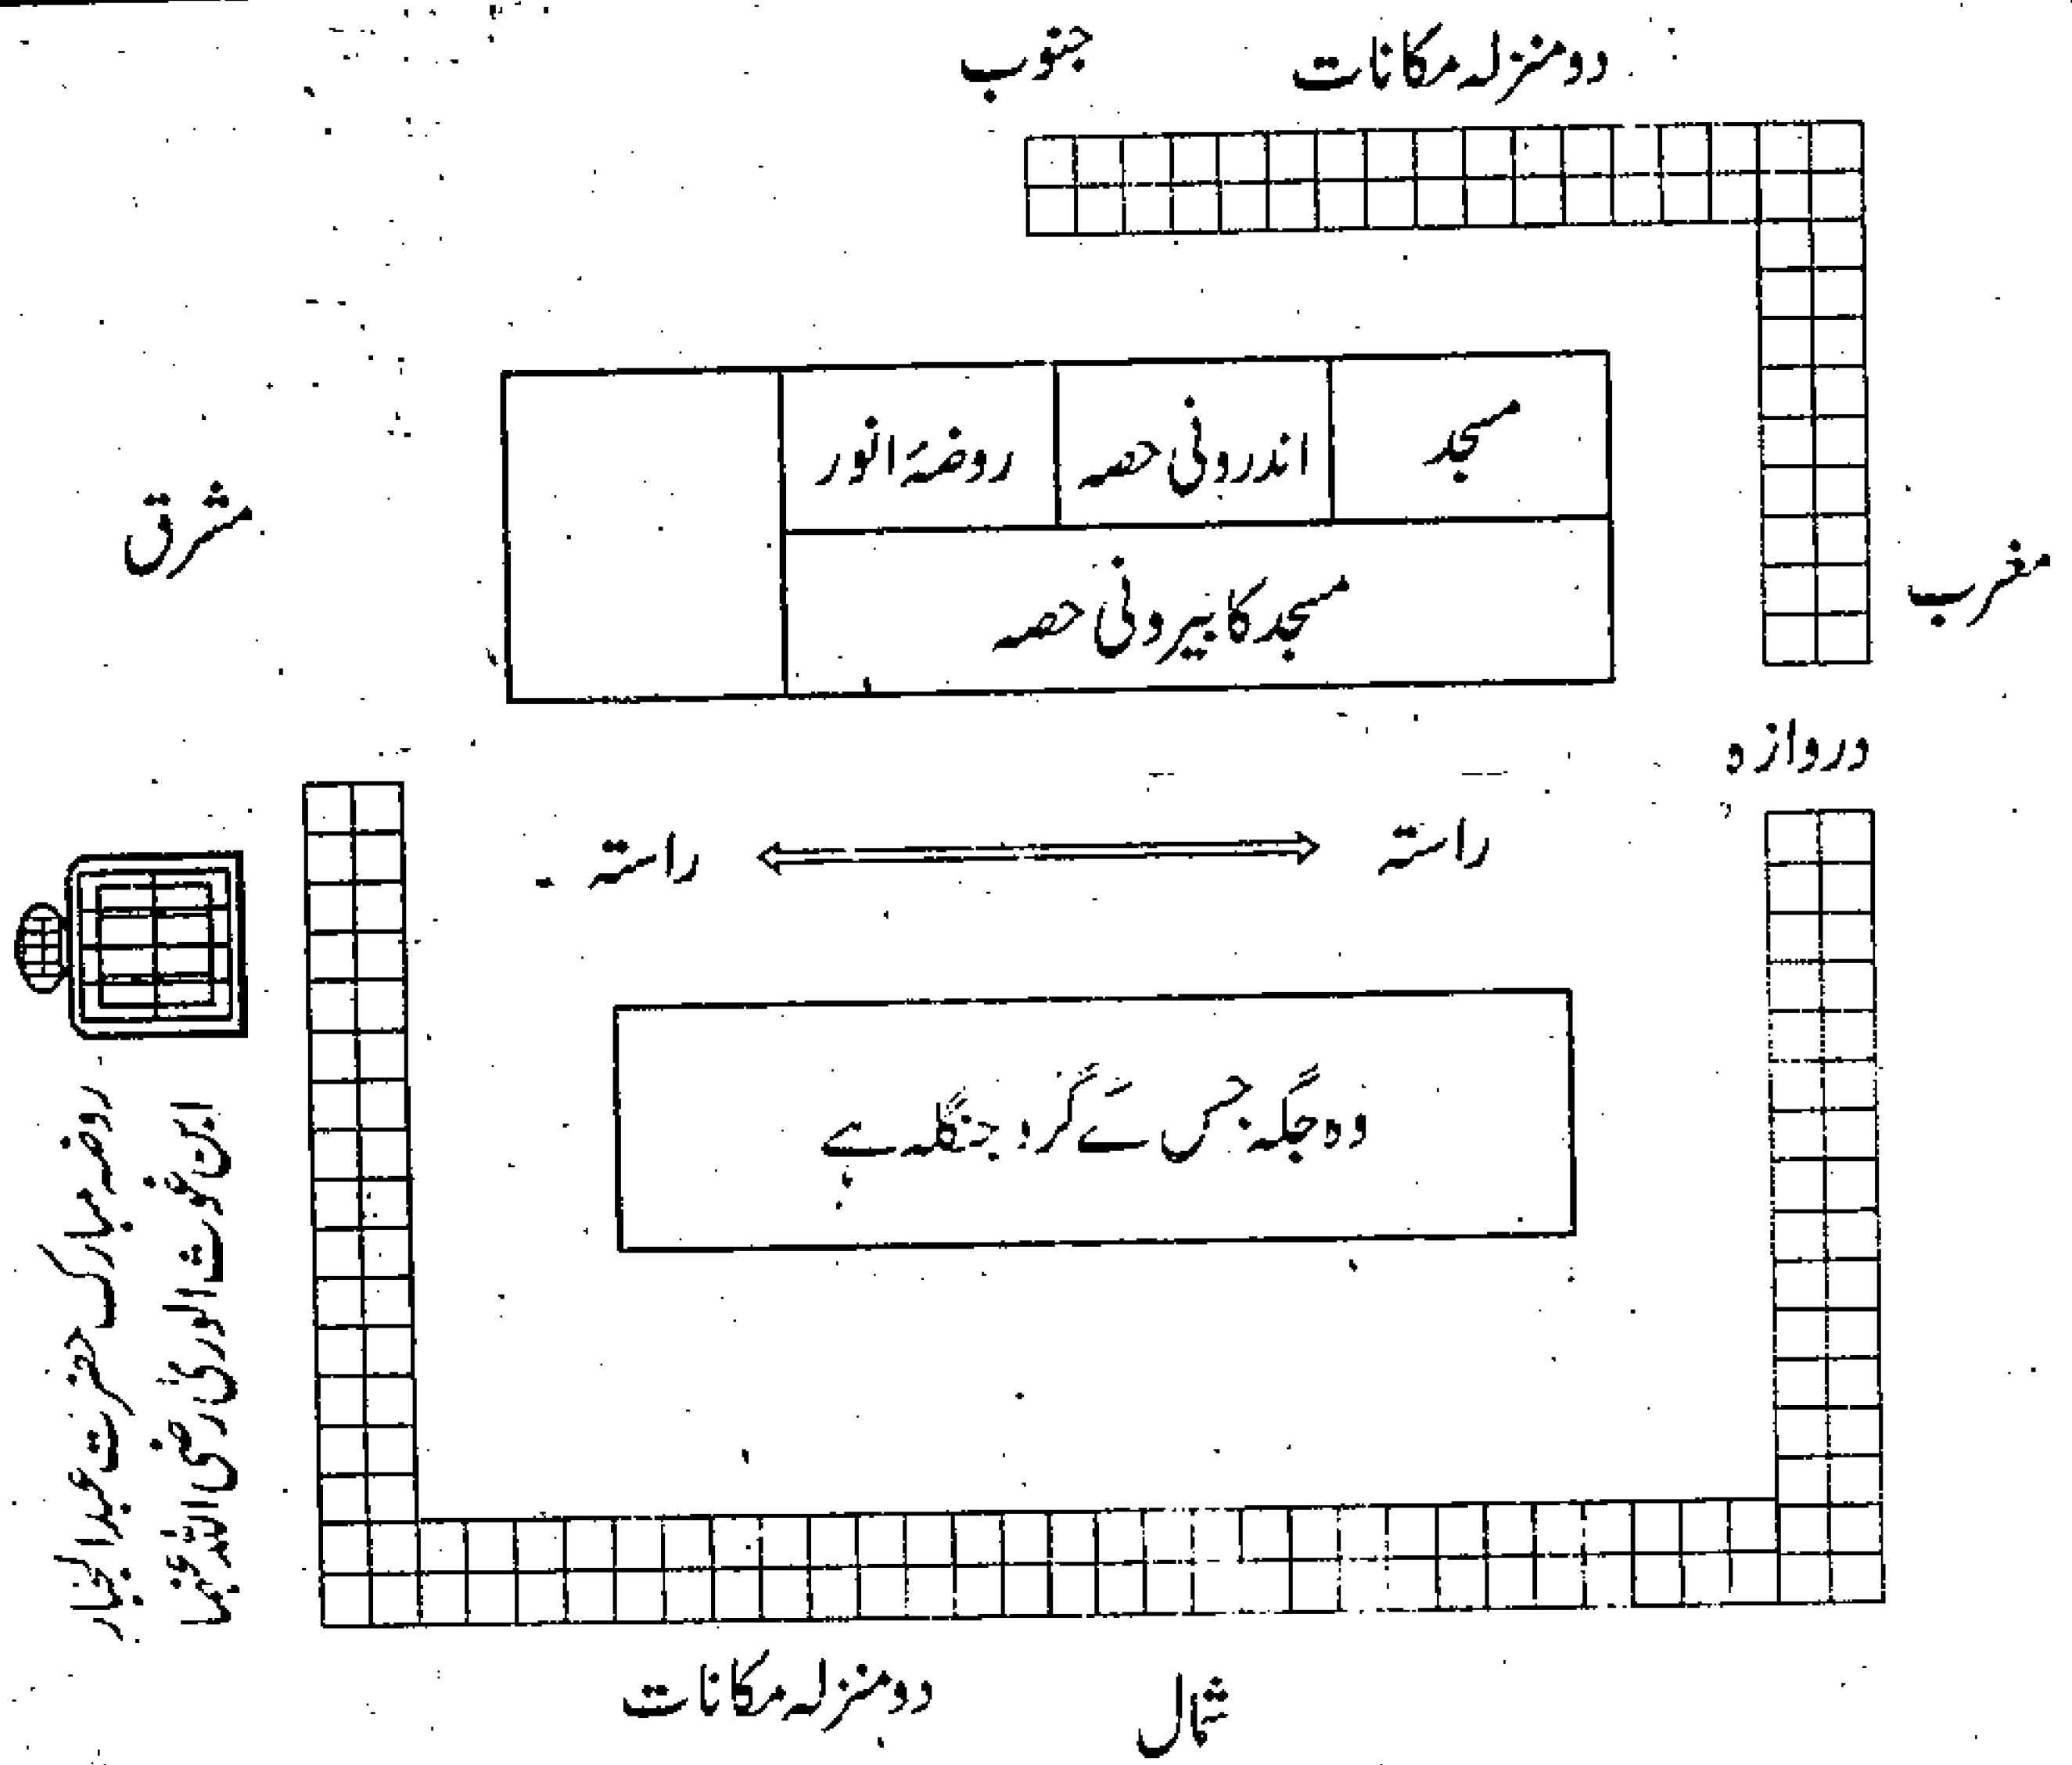 دو منزلہ مکانات
جنوب
مسجد
اندرونی حصہ
روضۂ انور
مسجد کا بیرونی حصہ
مشرق
مغرب
دروازہ
راستہ
راستہ
وہ جگہ جس کے گرد جنگلہ ہے
روضہ مبارک حضرت عبدالجبار
ابن غوث الوریٰ رضی اللہ عنہما
شمال
دو منزلہ مکانات